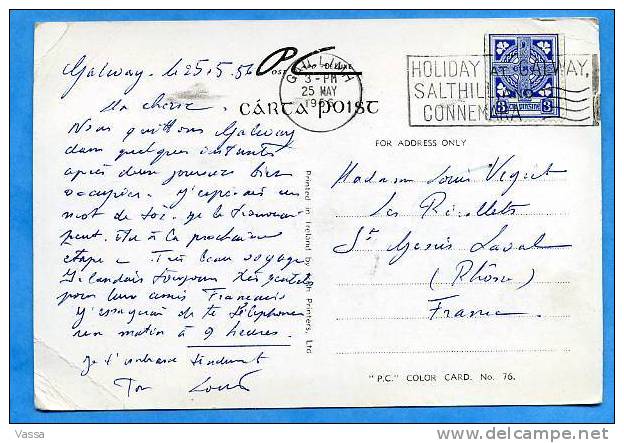 Galway. le 25.5.56
Ma chérie.
Nous quittons Galway
dans quelques instants
après deux journées bien
occupées. J'espérais un
mot de toi. je le trouverai
peut-être à la prochaine
étape. Très beau voyage
Irlandais toujours très gentils
pour leurs amis Français
J'essaierai de te téléphoner
matin à 9 heures.
Je t'embrasse tendrement
Ton Louis
P.C.
POST CARD DE LUXE
CÁRTA POIST
3-PM
25 MAY
1956
HOLIDAY AT GALWAY,
SALTHILL AND
CONNEMARA
3
FOR ADDRESS ONLY
Madame Louis
Les Récollets
St Genis Laval
(Rhône)
France.
Printed in Ireland by Printers, Ltd.
"P.C." COLOR CARD. No. 76.
Vassa
www.delcampe.net